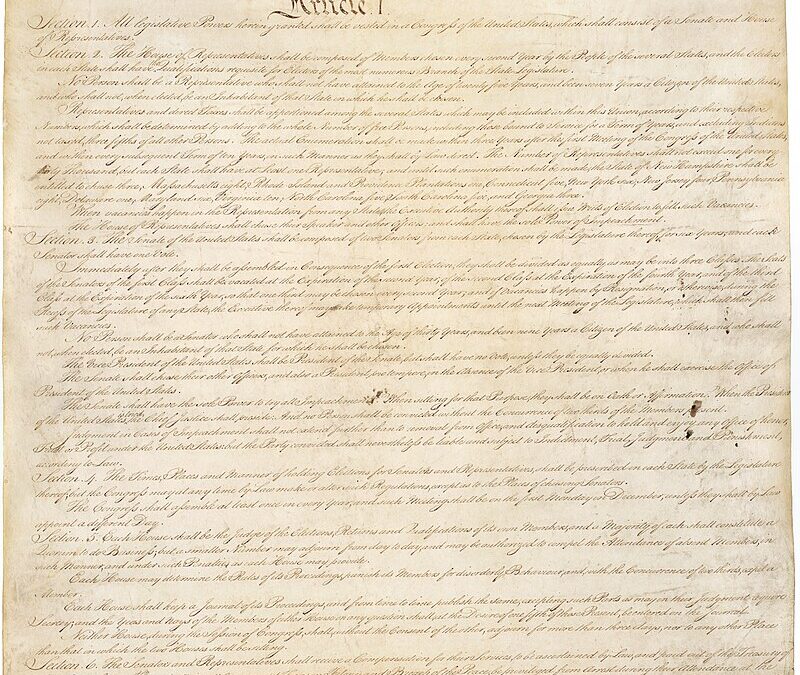 Article. I.
Section. 1. All legislative Powers herein granted shall be vested in a Congress of the United States, which shall consist of a Senate and House
of Representatives.
Section. 2. The House of Representatives shall be composed of Members chosen every second Year by the People of the several States, and the Electors
in each State shall have the Qualifications requisite for Electors of the most numerous Branch of the State Legislature.
No Person shall be a Representative who shall not have attained to the Age of twenty five Years, and been seven Years a Citizen of the United States,
and who shall not, when elected, be an Inhabitant of that State in which he shall be chosen.
Representatives and direct Taxes shall be apportioned among the several States which may be included within this Union, according to their respective
Numbers, which shall be determined by adding to the whole Number of free Persons, including those bound to Service for a Term of Years, and excluding Indians
not taxed, three fifths of all other Persons. The actual Enumeration shall be made within three Years after the first Meeting of the Congress of the United States,
and within every subsequent Term of ten Years, in such Manner as they shall by Law direct. The Number of Representatives shall not exceed one for every
thirty Thousand, but each State shall have at Least one Representative; and until such enumeration shall be made, the State of New Hampshire shall be
entitled to chuse three, Massachusetts eight, Rhode Island and Providence Plantations one, Connecticut five, New York six, New Jersey four, Pennsylvania
eight, Delaware one, Maryland six, Virginia ten, North Carolina five, South Carolina five, and Georgia three.
When vacancies happen in the Representation from any State, the Executive Authority thereof shall issue Writs of Election to fill such Vacancies.
The House of Representatives shall chuse their Speaker and other Officers; and shall have the sole Power of Impeachment.
Section. 3. The Senate of the United States shall be composed of two Senators from each State, chosen by the Legislature thereof, for six Years; and each
Senator shall have one Vote.
Immediately after they shall be assembled in Consequence of the first Election, they shall be divided as equally as may be into three Classes. The Seats
of the Senators of the first Class shall be vacated at the Expiration of the second Year, of the second Class at the Expiration of the fourth Year, and of the third
Class at the Expiration of the sixth Year, so that one third may be chosen every second Year; and if Vacancies happen by Resignation, or otherwise, during the
Recess of the Legislature of any State, the Executive thereof may make temporary Appointments until the next Meeting of the Legislature, which shall then fill
such Vacancies.
No Person shall be a Senator who shall not have attained to the Age of thirty Years, and been nine Years a Citizen of the United States, and who shall
not, when elected, be an Inhabitant of that State for which he shall be chosen.
The Vice President of the United States shall be President of the Senate, but shall have no Vote, unless they be equally divided.
The Senate shall chuse their other Officers, and also a President pro tempore, in the Absence of the Vice President, or when he shall exercise the Office of
President of the United States.
The Senate shall have the sole Power to try all Impeachments. When sitting for that Purpose, they shall be on Oath or Affirmation. When the President
of the United States is tried, the Chief Justice shall preside: And no Person shall be convicted without the Concurrence of two thirds of the Members present.
Judgment in Cases of Impeachment shall not extend further than to removal from Office, and disqualification to hold and enjoy any Office of honor,
Trust or Profit under the United States: but the Party convicted shall nevertheless be liable and subject to Indictment, Trial, Judgment and Punishment,
according to Law.
Section. 4. The Times, Places and Manner of holding Elections for Senators and Representatives, shall be prescribed in each State by the Legislature
thereof; but the Congress may at any time by Law make or alter such Regulations, except as to the Places of chusing Senators.
The Congress shall assemble at least once in every Year, and such Meeting shall be on the first Monday in December, unless they shall by Law
appoint a different Day.
Section. 5. Each House shall be the Judge of the Elections, Returns and Qualifications of its own Members, and a Majority of each shall constitute a
Quorum to do Business; but a smaller Number may adjourn from day to day, and may be authorized to compel the Attendance of absent Members, in
such Manner, and under such Penalties as each House may provide.
Each House may determine the Rules of its Proceedings, punish its Members for disorderly Behaviour, and, with the Concurrence of two thirds, expel a
Member.
Each House shall keep a Journal of its Proceedings, and from time to time publish the same, excepting such Parts as may in their Judgment require
Secrecy; and the Yeas and Nays of the Members of either House on any question shall, at the Desire of one fifth of those Present, be entered on the Journal.
Neither House, during the Session of Congress, shall, without the Consent of the other, adjourn for more than three days, nor to any other Place
than that in which the two Houses shall be sitting.
Section. 6. The Senators and Representatives shall receive a Compensation for their Services, to be ascertained by Law, and paid out of the Treasury of